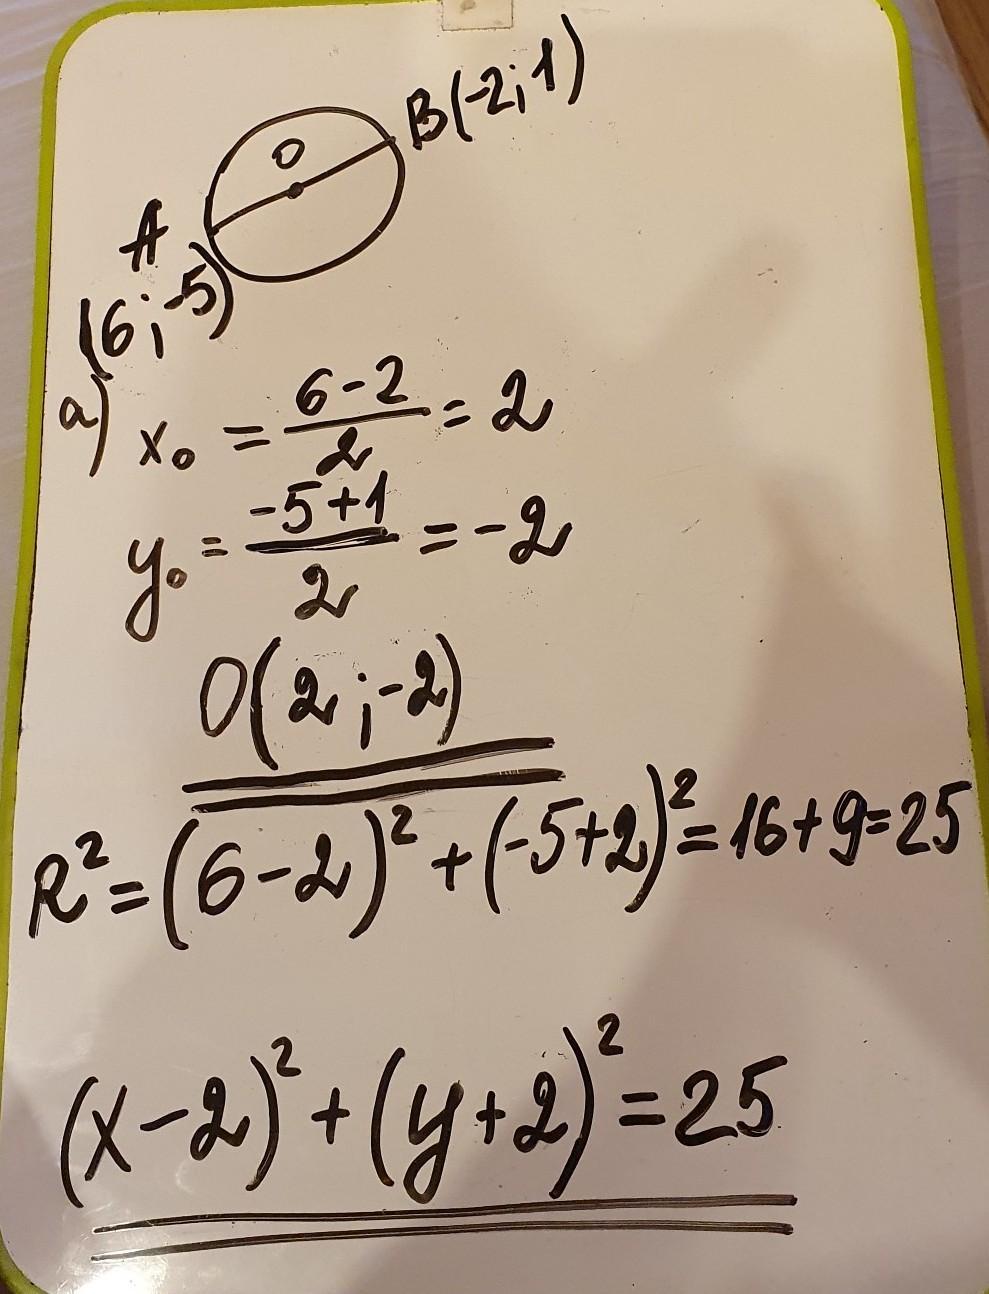 O
B(-2;1)
A
(6;-5)
a) x₀ = (6-2)/2 = 2
y₀ = (-5+1)/2 = -2
O(2;-2)
R² = (6-2)² + (-5+2)² = 16+9=25
(x-2)² + (y+2)² = 25